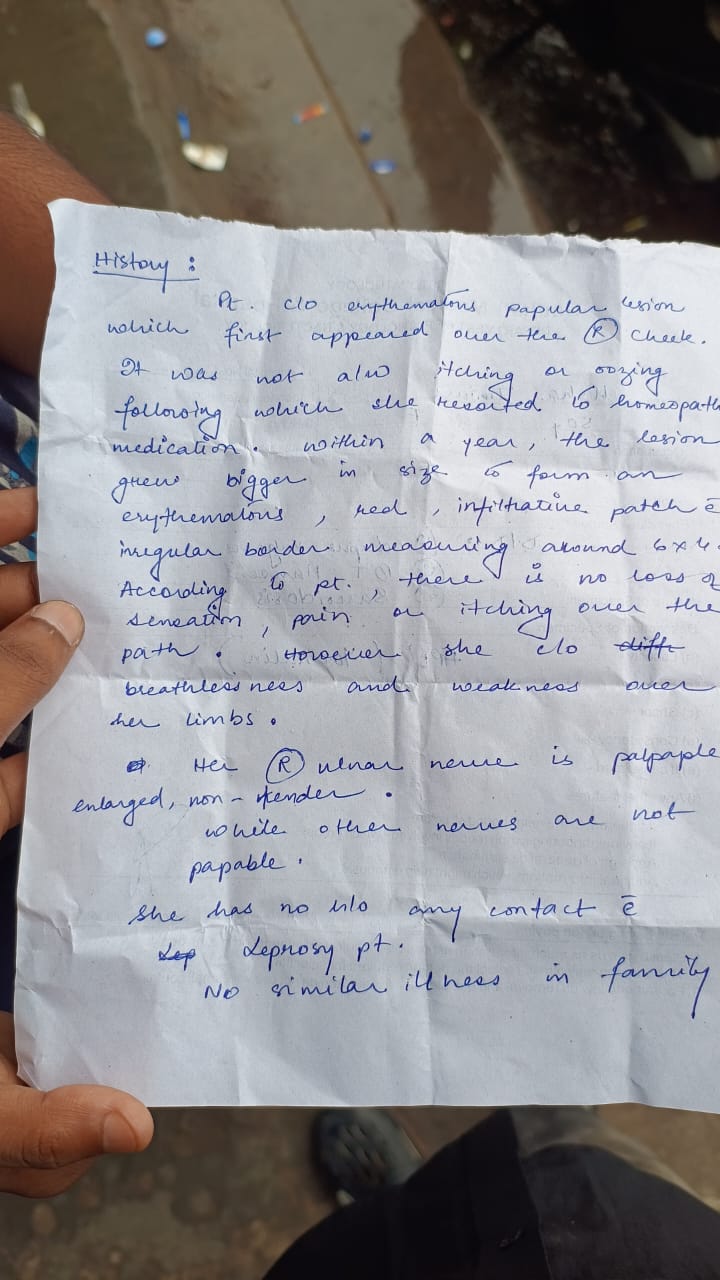 History :
Pt. c/o erythematous papular lesion
which first appeared over the (R) cheek.
It was not also itching or oozing
following which she resorted to homeopath
medication. within a year, the lesion
grew bigger in size to form an
erythematous, red, infiltrative patch c̄
irregular border measuring around 6x4
According to pt., there is no loss of
sensation, pain or itching over the
path. However she c/o diff
breathlessness and weakness over
her limbs.
Her (R) ulnar nerve is palpaple
enlarged, non-tender.
while other nerves are not
papable.
she has no h/o any contact c̄
Lep Leprosy pt.
No similar illness in family